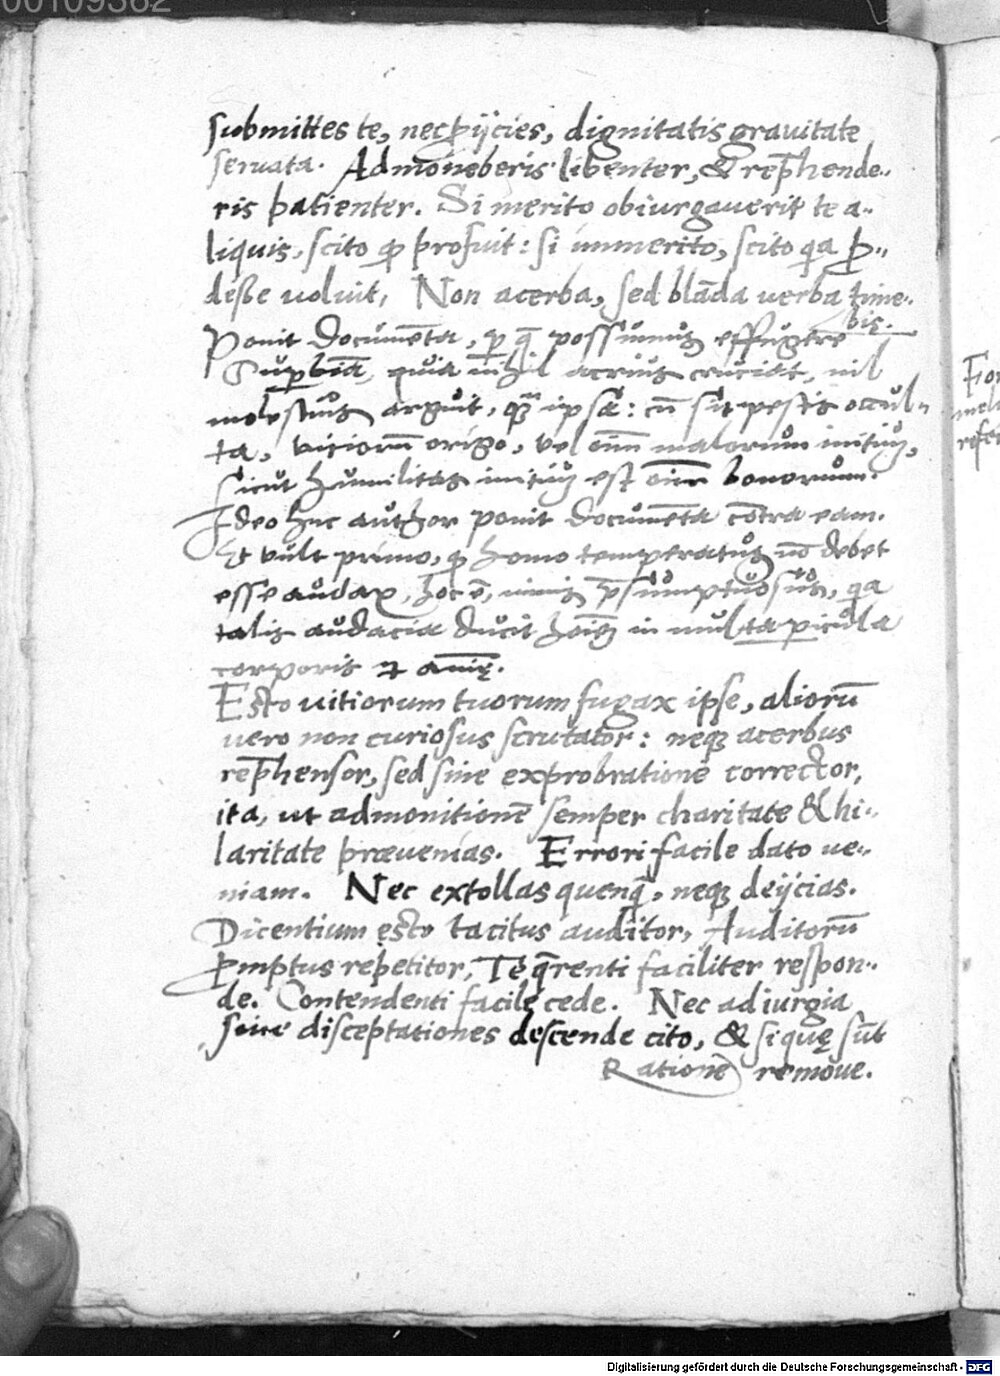 00109382
submittes te, nec ꝓijcies, dignitatis grauitate
seruata. Admoneberis libenter, & rep̄hende-
ris patienter. Si merito obiurgauerit te a-
liquis, scito ꝙ profuit: si immerito, scito qa ꝓ-
desse uoluit, Non acerba, sed blāda uerba time-
bis.
Ponit documēta, ꝑ q̄ possumus effugere
Suꝑbiā, quia nihil acrius cruciat, nil
molestius arguit, qꝫ ipsa: cū sit pestis occul-
ta, vitiorū origo, vel oīm malorum initiū,
sicut humilitas initiū est oīm bonorum.
Ideo hic author ponit documēta cōtra eam.
Et vult primo, ꝙ homo temperatus nō debet
esse audax, hoc ē, nimis p̄sumptuosus, qa
talis audacia ducit hoīes in multa ꝑicula
corporis et animę.
Esto uitiorum tuorum fugax ipse, aliorū
uero non curiosus scrutator: neqꝫ acerbus
rep̄hensor, sed sine exprobratione corrector,
ita, ut admonitionē semper charitate & hi-
laritate præuenias. Errori facile dato ue-
niam. Nec extollas quenq̄, neqꝫ deijcias.
Dicentium esto tacitus auditor, Auditorū
ꝓmptus repetitor, Te q̄renti faciliter respon-
de. Contendenti facile cede. Nec ad iurgia
siue disceptationes descende cito, & si quę sūt
Ratione remoue.
Digitalisierung gefördert durch die Deutsche Forschungsgemeinschaft - DFG